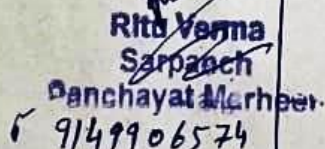 Ritu Verma
Sarpanch
Panchayat Marheen
9149906574